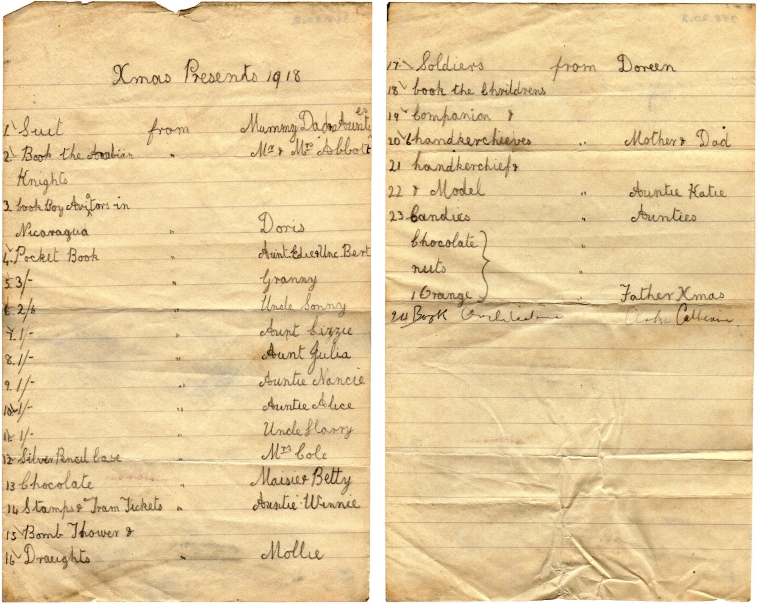 Xmas Presents 1918
1 Suit from Mummy Dad & Aunties
2 Book the Arabian " Mr & Mrs Abbott
Knights
3 book Boy Avitors in
Nicaragua " Doris
4 Pocket Book Aunt Edie & Unc. Bert
5 3/- " Granny
6 2/6 " Uncle Sonny
7. 1/- " Aunt Lizzie
8. 1/- " Aunt Julia
9. 1/- " Auntie Nancie
10 1/- " Auntie Alice
11 1/- " Uncle Harry
12 Silver Pencil Case " Mrs Cole
13 Chocolate " Maisie & Betty
14 Stamps & Tram Tickets " Auntie Winnie
15 Bomb Thower &
16 Draughts " Mollie
17 Soldiers from Doreen
18 book the Chrildrens
19 Companion &
20 6 handkerchieves " Mother & Dad
21 handkerchief &
22 & Model " Auntie Katie
23 Candies " Aunties
Chocolate
nuts "
1 Orange " Father Xmas
24 Book